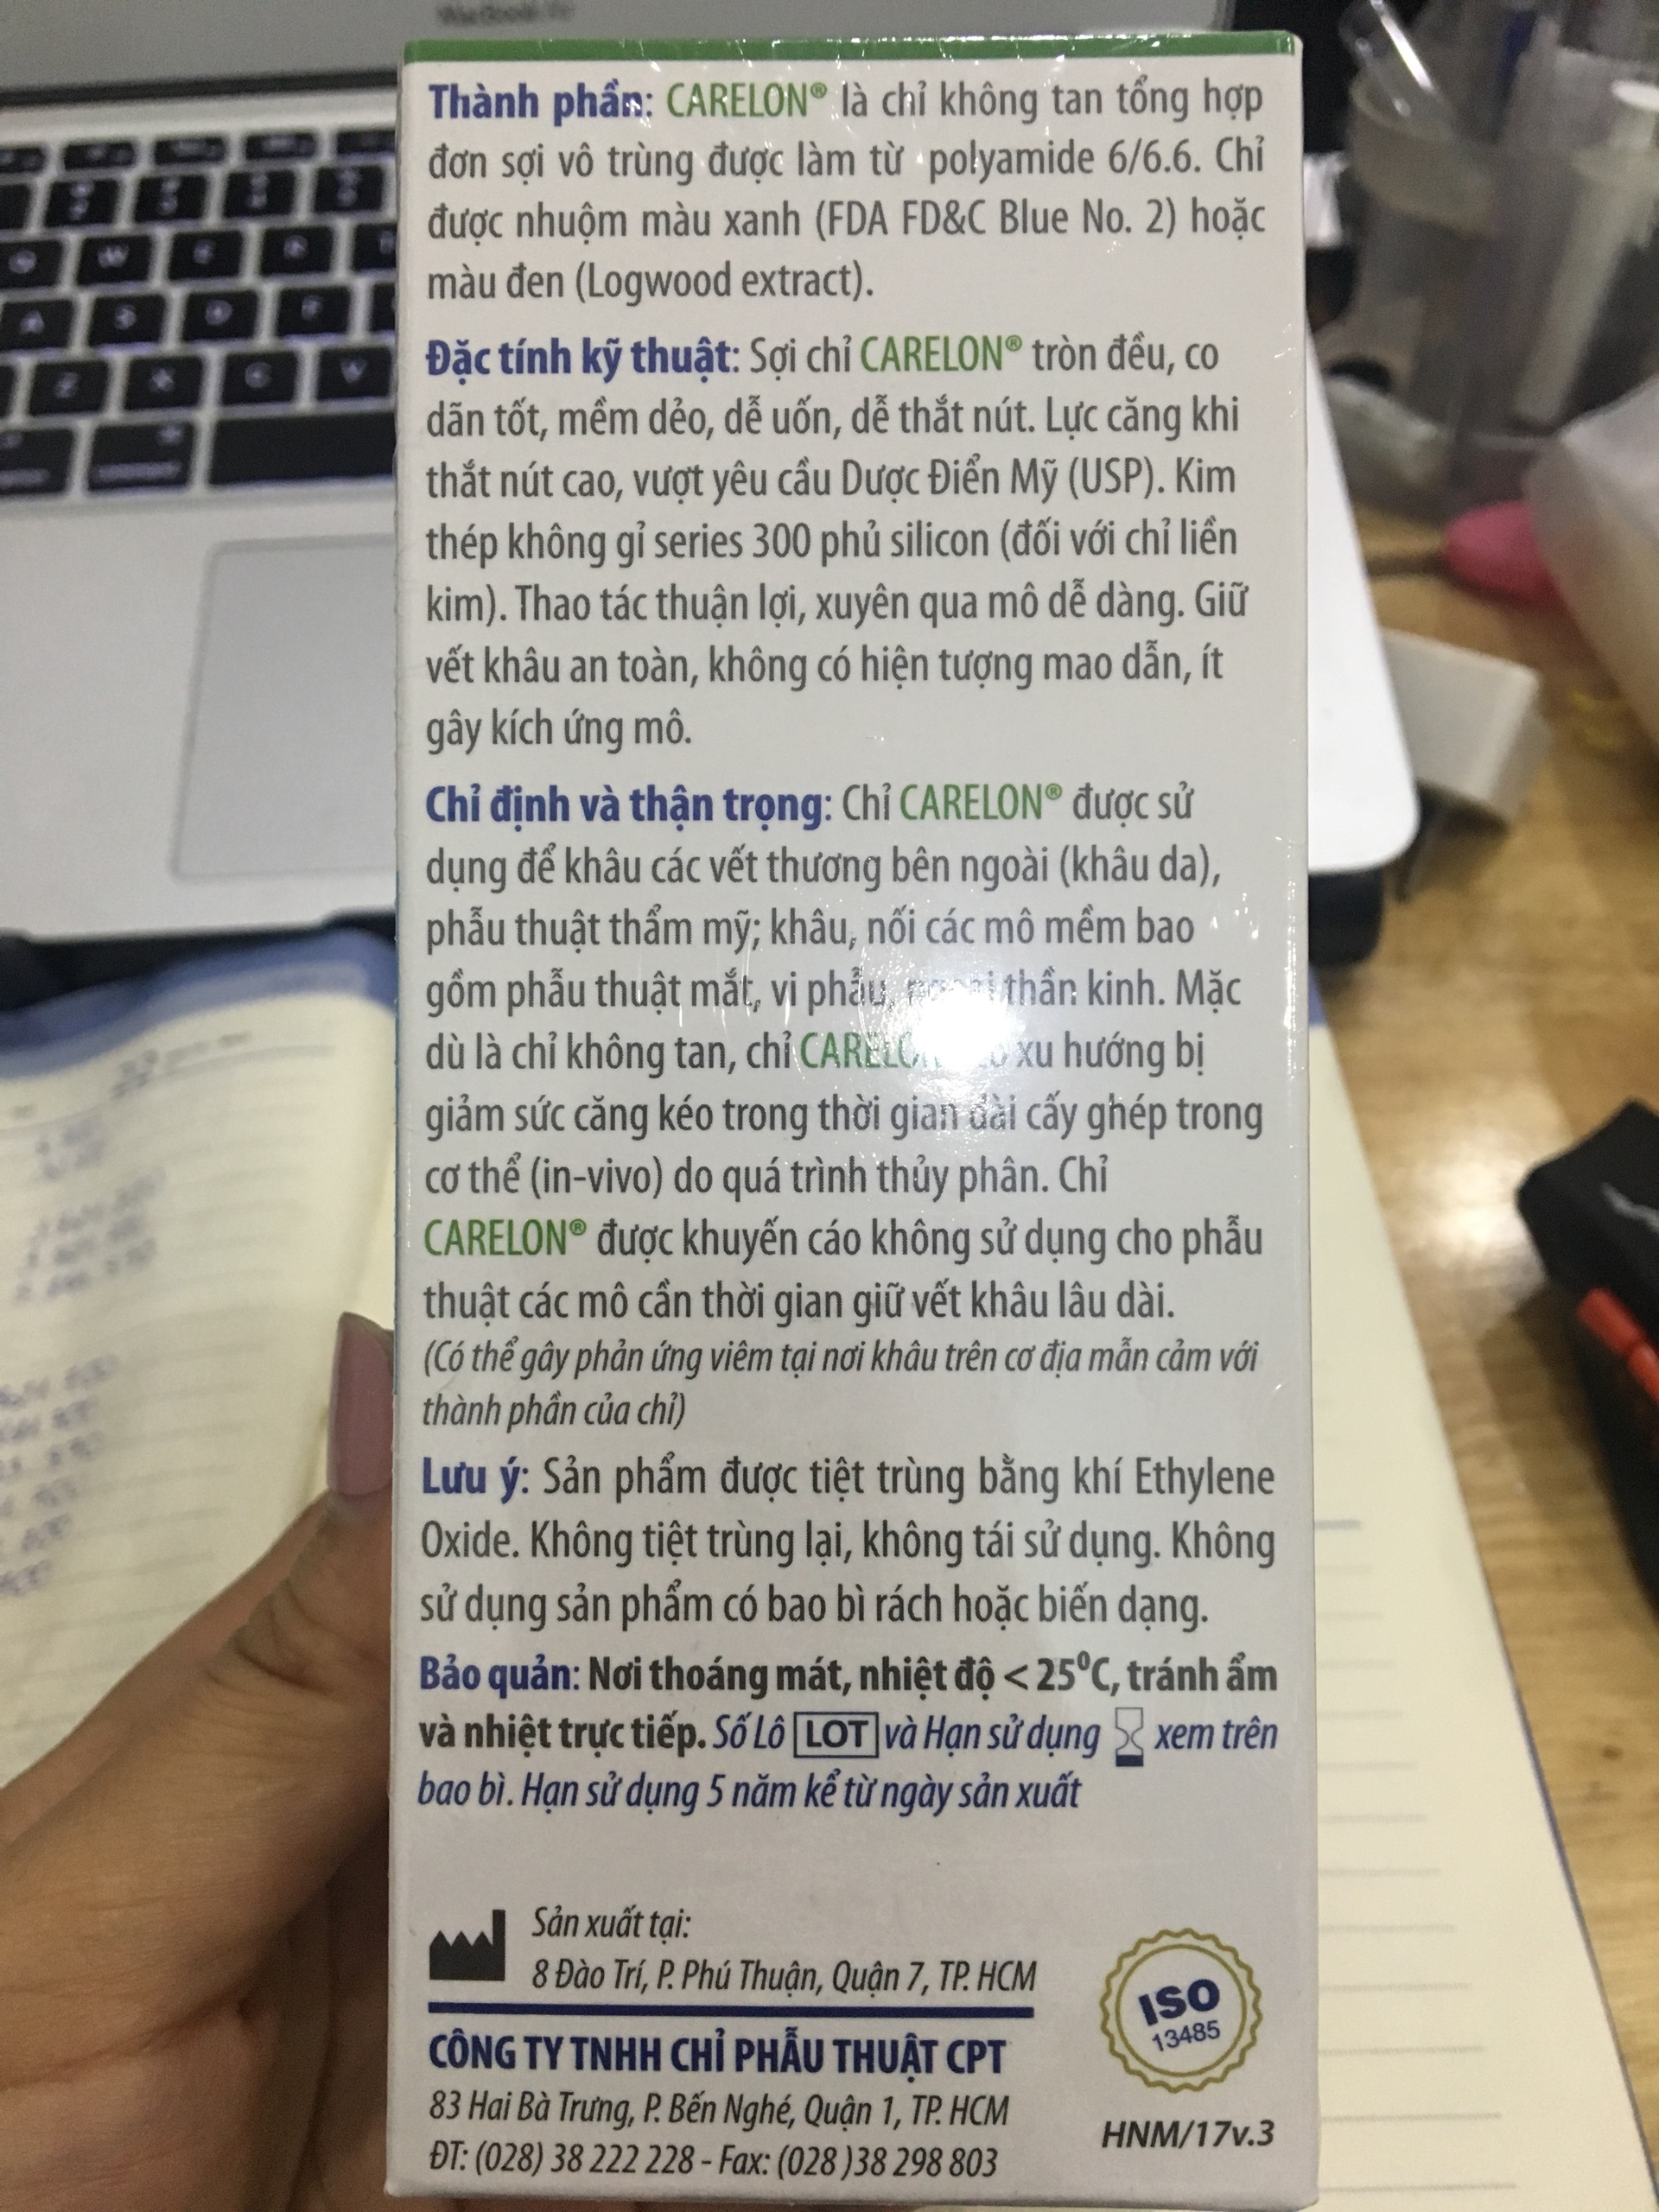 Thành phần: CARELON® là chỉ không tan tổng hợp
đơn sợi vô trùng được làm từ polyamide 6/6.6. Chỉ
được nhuộm màu xanh (FDA FD&C Blue No. 2) hoặc
màu đen (Logwood extract).
Đặc tính kỹ thuật: Sợi chỉ CARELON® tròn đều, co
dãn tốt, mềm dẻo, dễ uốn, dễ thắt nút. Lực căng khi
thắt nút cao, vượt yêu cầu Dược Điển Mỹ (USP). Kim
thép không gỉ series 300 phủ silicon (đối với chỉ liền
kim). Thao tác thuận lợi, xuyên qua mô dễ dàng. Giữ
vết khâu an toàn, không có hiện tượng mao dẫn, ít
gây kích ứng mô.
Chỉ định và thận trọng: Chỉ CARELON® được sử
dụng để khâu các vết thương bên ngoài (khâu da),
phẫu thuật thẩm mỹ; khâu, nối các mô mềm bao
gồm phẫu thuật mắt, vi phẫu, thần kinh. Mặc
dù là chỉ không tan, chỉ xu hướng bị
giảm sức căng kéo trong thời gian dài cấy ghép trong
cơ thể (in-vivo) do quá trình thủy phân. Chỉ
CARELON® được khuyến cáo không sử dụng cho phẫu
thuật các mô cần thời gian giữ vết khâu lâu dài.
(Có thể gây phản ứng viêm tại nơi khâu trên cơ địa mẫn cảm với
thành phần của chỉ)
Lưu ý: Sản phẩm được tiệt trùng bằng khí Ethylene
Oxide. Không tiệt trùng lại, không tái sử dụng. Không
sử dụng sản phẩm có bao bì rách hoặc biến dạng.
Bảo quản: Nơi thoáng mát, nhiệt độ < 25⁰C, tránh ẩm
và nhiệt trực tiếp. Số Lô LOT và Hạn sử dụng xem trên
bao bì. Hạn sử dụng 5 năm kể từ ngày sản xuất
Sản xuất tại:
8 Đào Trí, P. Phú Thuận, Quận 7, TP. HCM
CÔNG TY TNHH CHỈ PHẪU THUẬT CPT
83 Hai Bà Trưng, P. Bến Nghé, Quận 1, TP. HCM
ĐT: (028) 38 222 228 - Fax: (028 )38 298 803
ISO
13485
HNM/17v.3